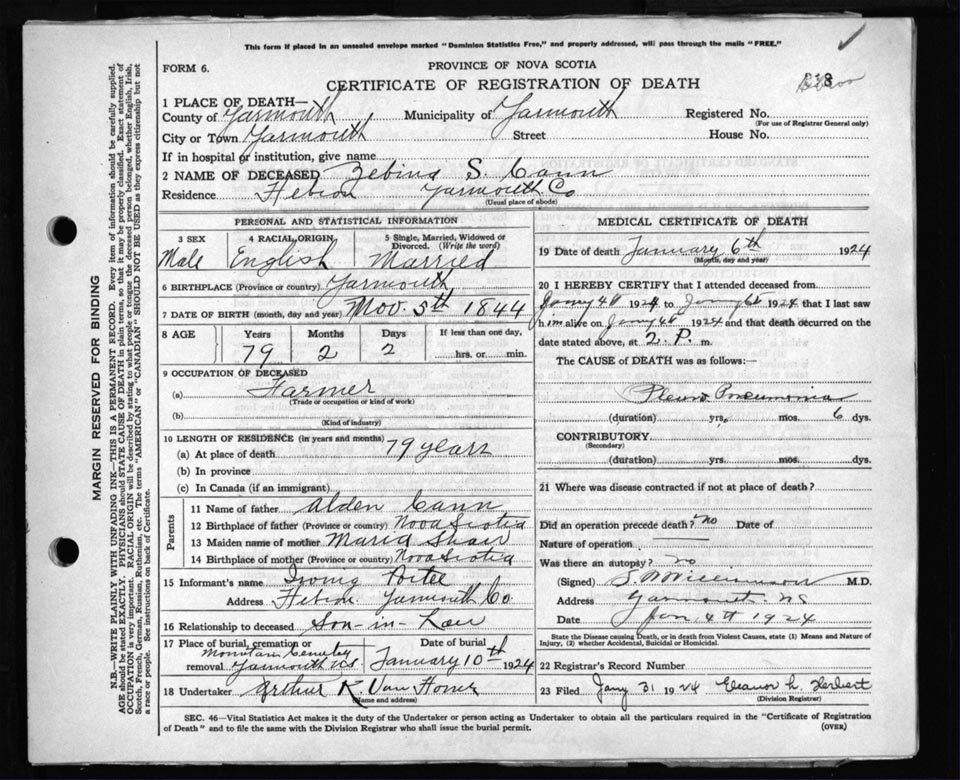 This form if placed in an unsealed envelope marked "Dominion Statistics Free," and properly addressed, will pass through the mails "FREE."
FORM 6.
PROVINCE OF NOVA SCOTIA
CERTIFICATE OF REGISTRATION OF DEATH
1 PLACE OF DEATH—
County of Yarmouth Municipality of Yarmouth Registered No.
(For use of Registrar General only)
City or Town Yarmouth Street House No.
If in hospital or institution, give name
2 NAME OF DECEASED Zebina S. Cann
Residence Hebron Yarmouth Co
(Usual place of abode)
PERSONAL AND STATISTICAL INFORMATION
3 SEX Male
4 RACIAL ORIGIN English
5 Single, Married, Widowed or Divorced. (Write the word) Married
6 BIRTHPLACE (Province or country) Yarmouth
7 DATE OF BIRTH (month, day and year) Nov. 5th 1844
8 AGE Years Months Days If less than one day,
79 2 2 hrs. or min.
9 OCCUPATION OF DECEASED
(a) Farmer
(Trade or occupation or kind of work)
(b)
(Kind of industry)
10 LENGTH OF RESIDENCE (in years and months)
(a) At place of death 79 years
(b) In province
(c) In Canada (if an immigrant)
Parents
11 Name of father Alden Cann
12 Birthplace of father (Province or country) Nova Scotia
13 Maiden name of mother Maria Shaw
14 Birthplace of mother (Province or country) Nova Scotia
15 Informant's name Irving
Address Hebron Yarmouth Co
16 Relationship to deceased Son-in-Law
17 Place of burial, cremation or removal Mountain Cemetery Yarmouth NS
Date of burial January 10th 1924
18 Undertaker Arthur K. Van Horne
(Name and address)
MEDICAL CERTIFICATE OF DEATH
19 Date of death January 6th 1924
(Month, day and year)
20 I HEREBY CERTIFY that I attended deceased from
Janry 4th 1924 to Janry 6th 1924 that I last saw
him alive on Janry 4th 1924 and that death occurred on the
date stated above, at 2. P. m.
The CAUSE of DEATH was as follows:—
Pleuro Pneumonia
(duration) yrs. mos. 6 dys.
CONTRIBUTORY
(Secondary)
(duration) yrs. mos. dys.
21 Where was disease contracted if not at place of death?
Did an operation precede death? no Date of
Nature of operation
Was there an autopsy? no
(Signed) Williamson M.D.
Address Yarmouth. NS
Date Jan 4th 1924
State the Disease causing Death, or in death from Violent Causes, state (1) Means and Nature of
Injury, (2) whether Accidental, Suicidal or Homicidal.
22 Registrar's Record Number
23 Filed Jany 31 1924 Eleanor L. Herbert
(Division Registrar)
SEC. 46—Vital Statistics Act makes it the duty of the Undertaker or person acting as Undertaker to obtain all the particulars required in the "Certificate of Registration
of Death" and to file the same with the Division Registrar who shall issue the burial permit. (OVER)
MARGIN RESERVED FOR BINDING
N.B.—WRITE PLAINLY WITH UNFADING INK—THIS IS A PERMANENT RECORD. Every item of information should be carefully supplied.
AGE should be stated EXACTLY. PHYSICIANS should STATE CAUSE OF DEATH in plain terms, so that it may be properly classified. Exact statement of
OCCUPATION is very important. RACIAL ORIGIN will be described by stating to what people or tongue the deceased person belonged, whether English, Irish,
Scotch, French, German, Russian, Ruthenian, etc. The terms "AMERICAN" or "CANADIAN" SHOULD NOT BE USED as they express citizenship but not
a race or people. See instructions on back of Certificate.